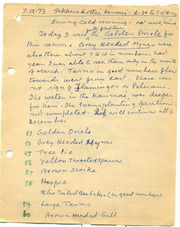 7.12.73
During Cold mornings - not much wind
Today I saw the Golden Oriole for
this season. Grey Headed Myna were
also there about 7 & 10 in numbers. Last
year I was able to see them only in the month
of March. Terns in good numbers flew
towards west from East. There was
no sign of flamingos or Pelicans.
The water in the Kaunvas was deeper
for them. The transplanting operations
not completed. It will continue till
53 Golden Oriole
56 Grey Headed Myna
57 Tree Pie
52 Yellow Throated Sparrow
57 Brown Shrike
58 Hoopoe
Blue Tailed Bee Eater (in good numbers
59 Large Terns
60 Brown Headed Gull